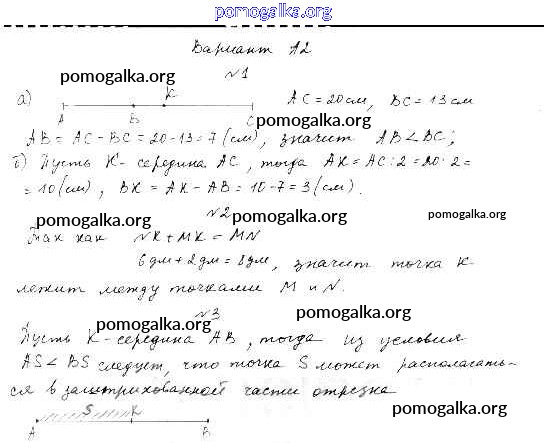 pomogalka.org
Вариант А2
№1
pomogalka.org
а) A B K C AC = 20 см, BC = 13 см
pomogalka.org
AB = AC - BC = 20 - 13 = 7 (см), значит AB < BC;
б) Пусть K - середина AC, тогда AK = AC : 2 = 20 : 2 =
= 10 (см), BK = AK - AB = 10 - 7 = 3 (см).
pomogalka.org №2 pomogalka.org pomogalka.org
Так как NK + MK = MN
6 дм + 2 дм = 8 дм, значит точка K
лежит между точками M и N.
№3 pomogalka.org
pomogalka.org
Пусть K - середина AB, тогда из условия
AS < BS следует, что точка S может располагать-
ся в заштрихованной части отрезка
S K
A B
pomogalka.org